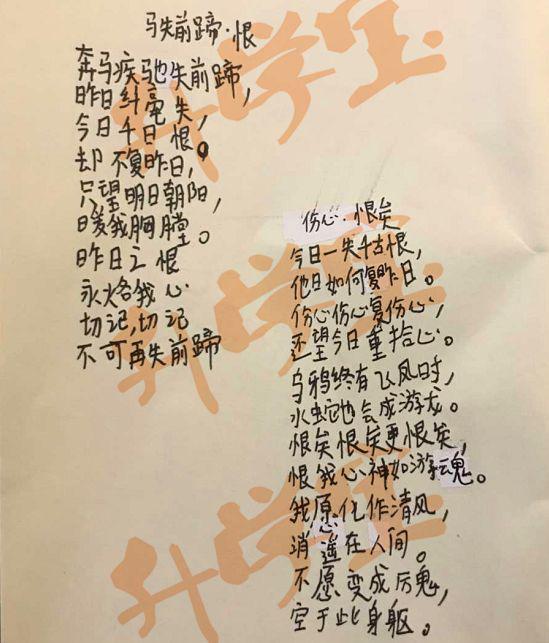 马失前蹄·恨
奔马疾驰失前蹄，
昨日纤毫失，
今日千日恨，
却不复昨日。
只望明日朝阳，
暖我胸膛。
昨日之恨
永烙我心
切记，切记
不可再失前蹄
伤心·恨矣
今日一失千古恨，
他日如何复昨日。
伤心伤心复伤心，
还望今日重拾心。
乌鸦终有飞凤时，
水蛇也会成游龙。
恨矣恨矣更恨矣，
恨我心神如游魂。
我愿化作清风，
消遥在人间。
不愿变成厉鬼，
空于此身躯。
升学宝
升学宝
升学宝